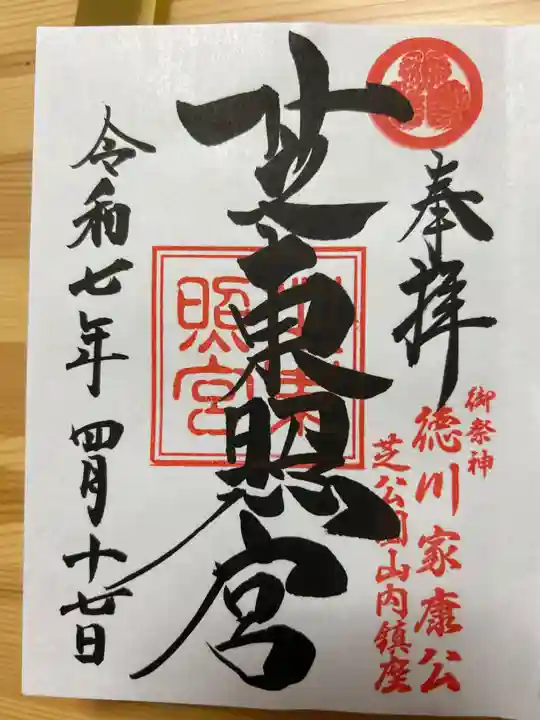 奉拝
御祭神
徳川家康公
芝公園山内鎮座
芝東照宮
芝東
照宮
令和七年 四月十七日